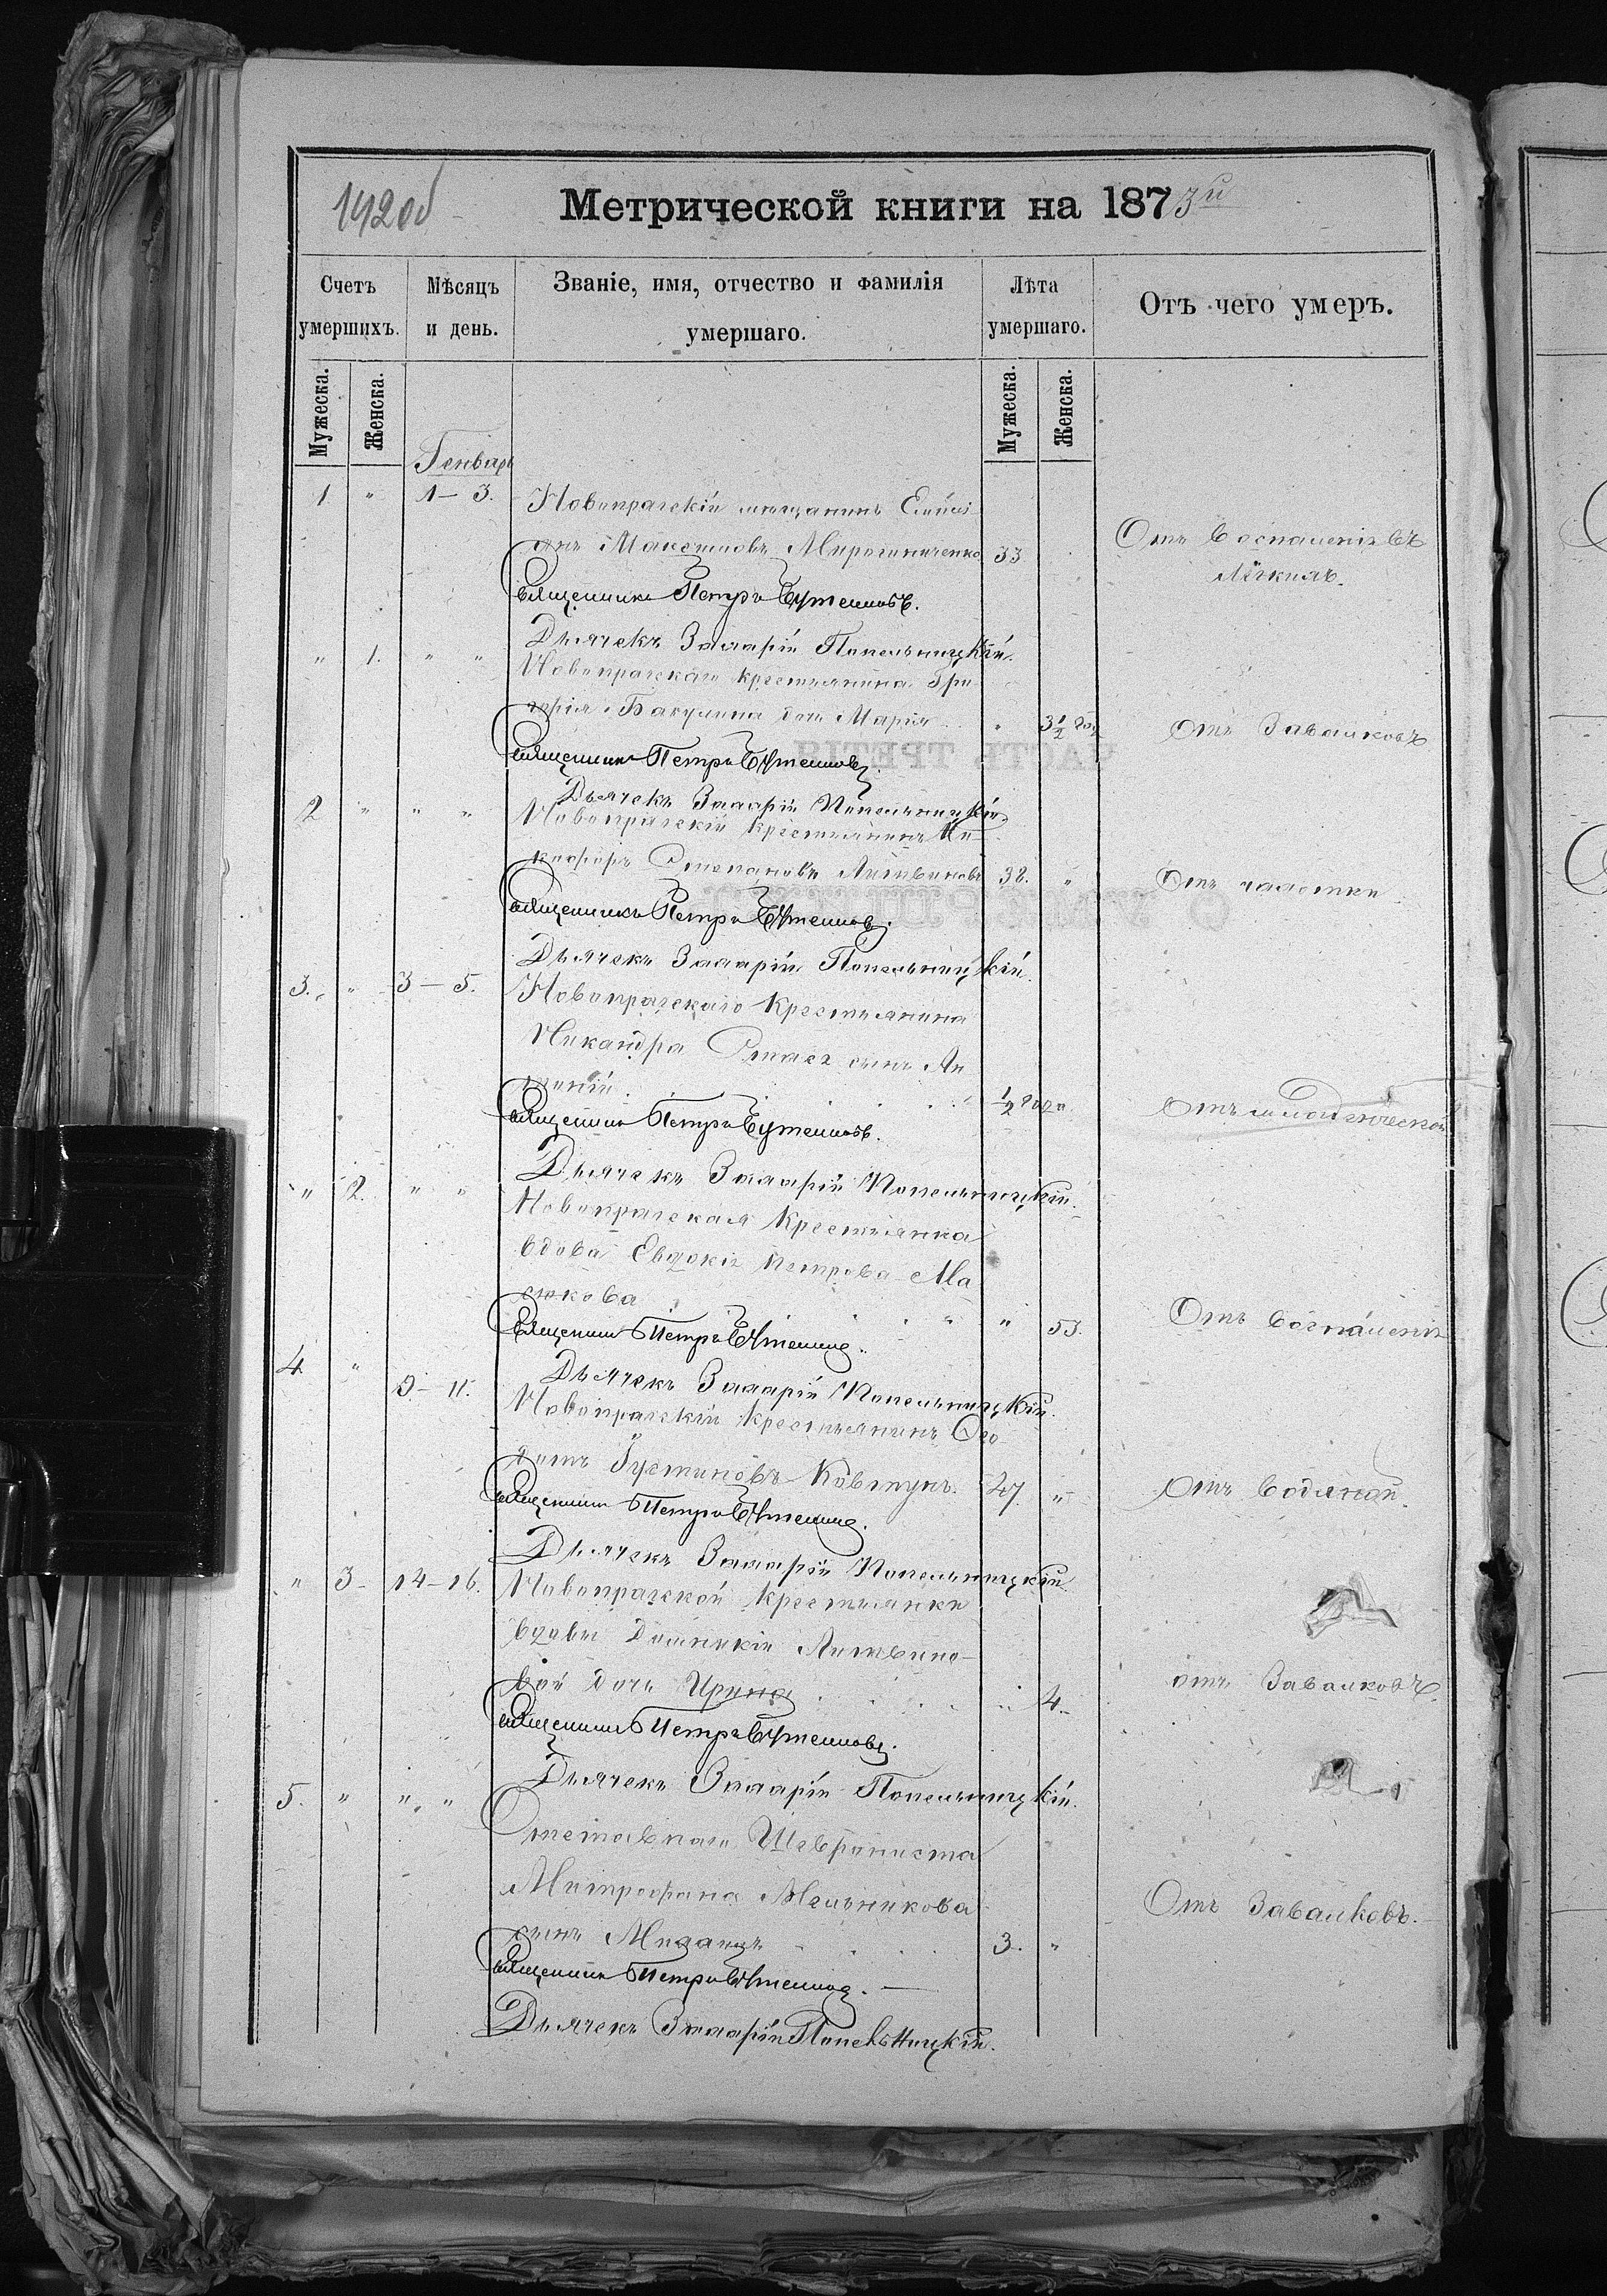 142об
Метрической книги на 1873й
Счетъ умершихъ.
Мѣсяцъ и день.
Званіе, имя, отчество и фамилія умершаго.
Лѣта умершаго.
Отъ чего умеръ.
Мужеска.
Женска.
Мужеска.
Женска.
Генварь
1 " 1–3. Новопражскій мѣщанинъ Емилі
анъ Максимовъ Мирошниченко 33
Отъ воспаленія въ
лёгкихъ.
Священникъ Петръ
Дьячекъ Захарій Попельницкій.
" 1. " " Новопражскаго крестьянина Гри
горія Бакулина дочь Марія " 3½ год Отъ Завалковъ
Священникъ Петръ
Дьячекъ Захарій Попельницкій.
2 " " " Новопражскій крестьянинъ Ни
кифоръ Степановъ Литвиновъ 38. " Отъ чахотки
Священникъ Петръ
Дьячекъ Захарій Попельницкій.
3. " 3–5. Новопражскаго крестьянина
Никандра сынъ
½ года Отъ младенческой
Священникъ Петръ
Дьячекъ Захарій Попельницкій.
" 2. " " Новопражская крестьянка
вдова Евдокія Петрова Ма
сюкова " 53. Отъ воспаленія
Священникъ Петръ
Дьячекъ Захарій Попельницкій.
4 " 9–11. Новопражскій крестьянинъ Ѳео
Іустиновъ Ковтунъ. 47. " Отъ водяной.
Священникъ Петръ
Дьячекъ Захарій Попельницкій.
" 3– 14–16. Новопражской крестьянки
вдовы Домникіи Литвино–
вой дочь Ирина 4. отъ Завалковъ.
Священникъ Петръ
Дьячекъ Захарій Попельницкій.
5. " " " Отставнаго
Митрофана Мельникова
сынъ 3. " Отъ Завалковъ.
Священникъ Петръ
Дьячекъ Захарій Попельницкій.